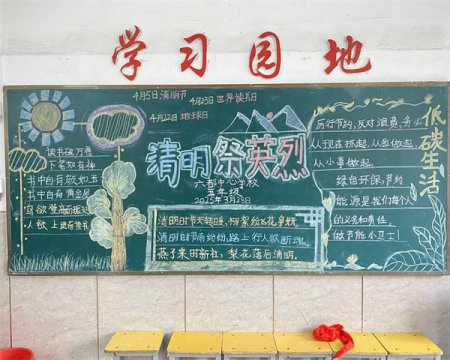 学习园地
4月5日清明节
4月23日世界读书日
4月22日地球日
读书破万卷
下笔如有神
书中自有颜如玉
书中自有黄金屋
清明祭英烈
六都中心学校
五年级
2025年3月28
清明时节天转晴
清明时节雨纷纷,路上行人欲断魂。
燕子来时新社,梨花落后清明。
低碳生活
厉行节约,反对浪费,务必
从现在做起,从我做起,
从小事做起。
绿色环保,节约
能源是我们每个人
的义务和责任。
做节能小卫士!